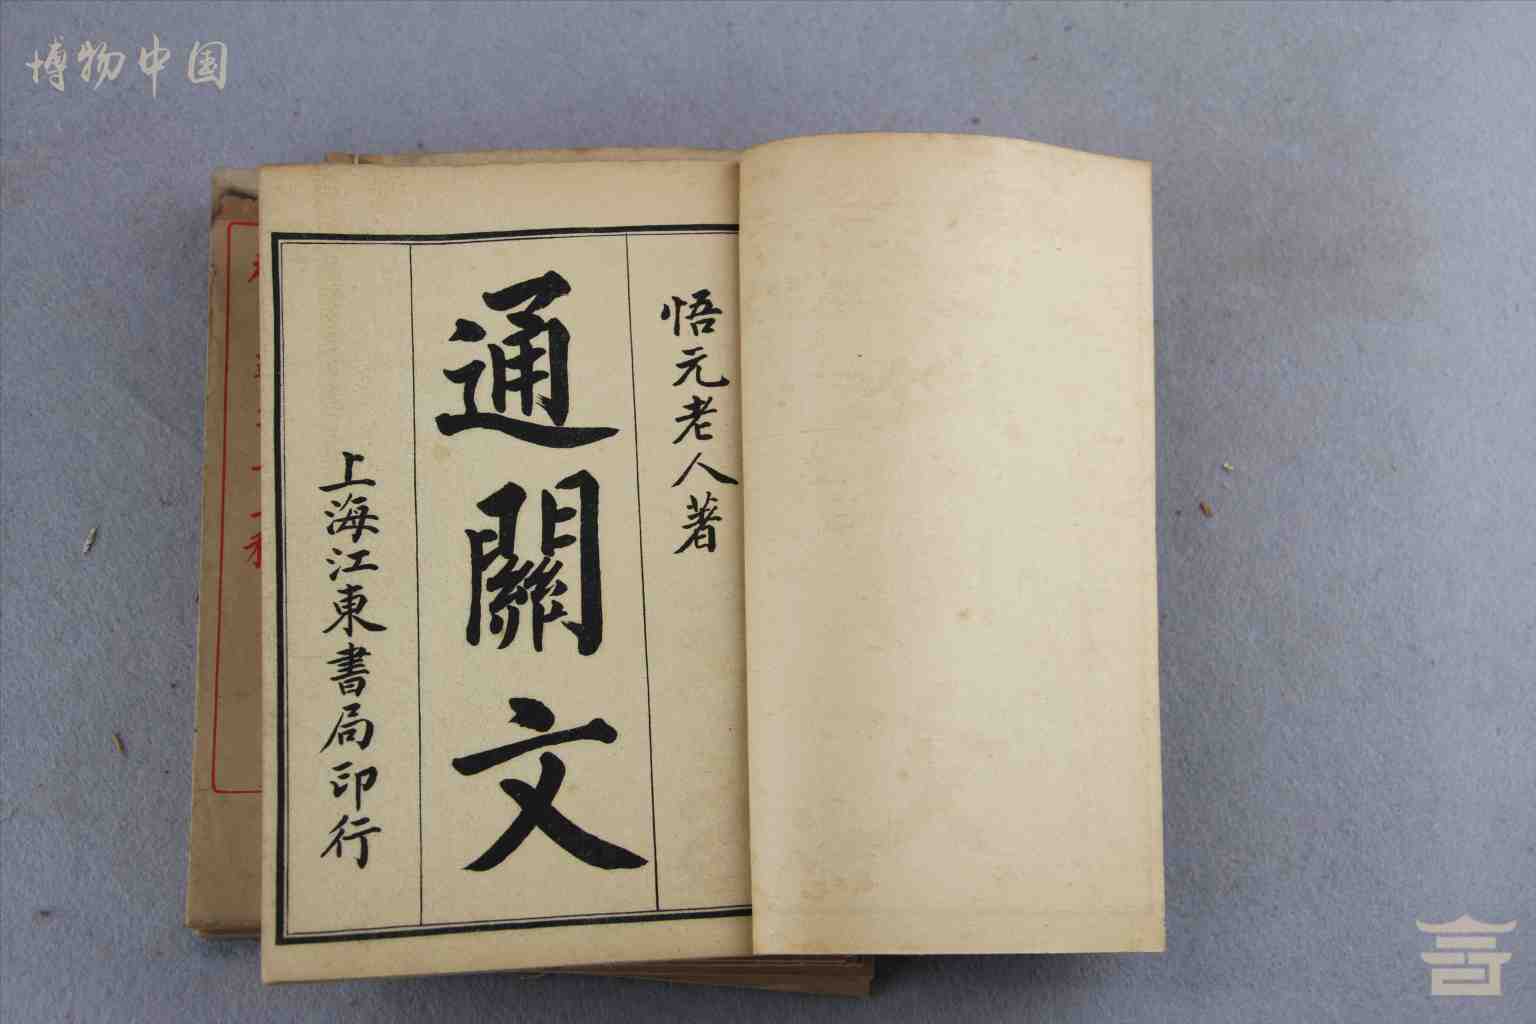 博物中国
悟元老人著
通關文
上海江東書局印行